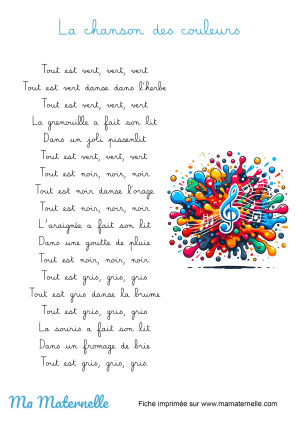 La chanson des couleurs
Tout est vert, vert, vert
Tout est vert danse dans l'herbe
Tout est vert, vert, vert
La grenouille a fait son lit
Dans un joli pissenlit
Tout est vert, vert, vert
Tout est noir, noir, noir
Tout est noir danse l'orage
Tout est noir, noir, noir
L'araignée a fait son lit
Dans une goutte de pluie
Tout est noir, noir, noir.
Tout est gris, gris, gris
Tout est gris danse la brume
Tout est gris, gris, gris
La souris a fait son lit
Dans un fromage de brie
Tout est gris, gris, gris.
Ma Maternelle
Fiche imprimée sur www.mamaternelle.com